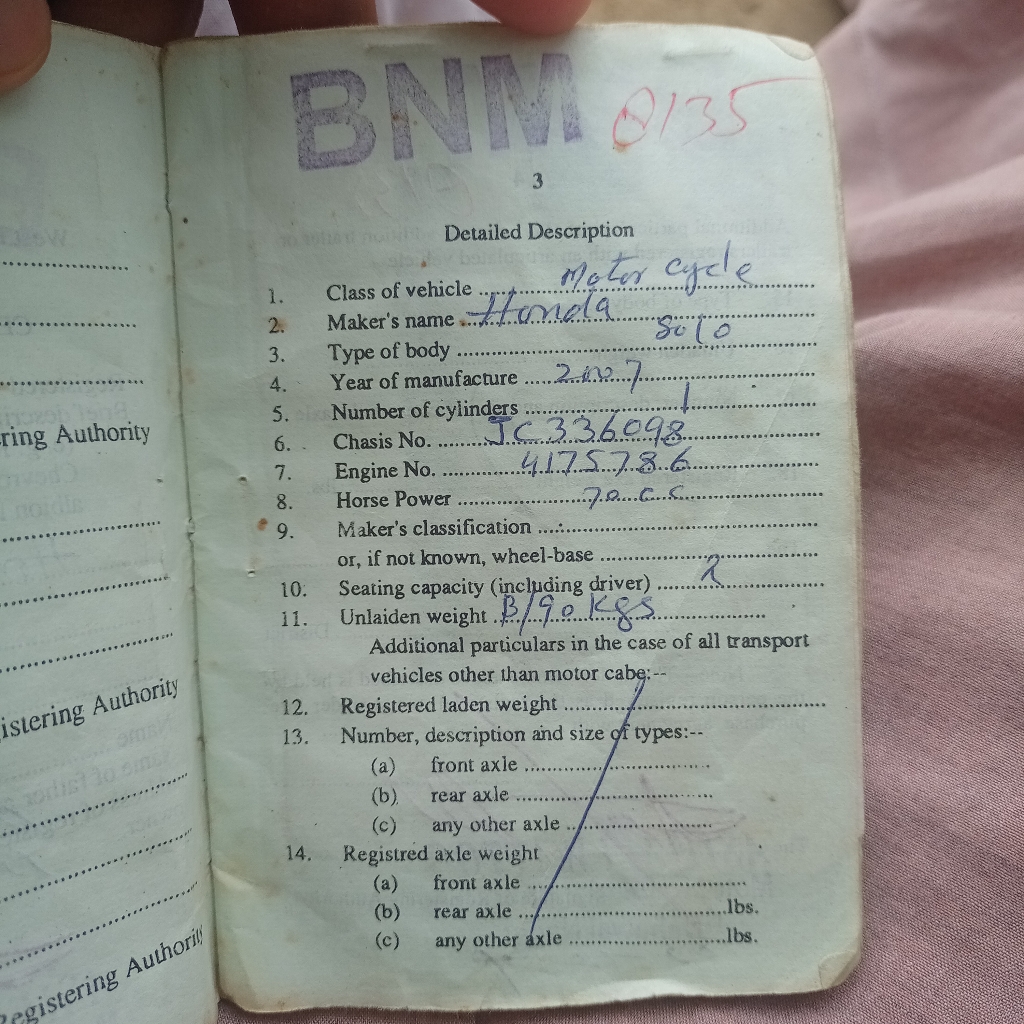 BNM 0135
3
Detailed Description
1. Class of vehicle ........ Motor cycle
2. Maker's name ... Honda ........
3. Type of body ........ Solo
4. Year of manufacture ..... 2007 ........
5. Number of cylinders ........ 1 ........
6. Chasis No. ..... JC336098 ........
7. Engine No. ........ 4175786 ........
8. Horse Power ........ 70 cc ........
9. Maker's classification ........
or, if not known, wheel-base ........
10. Seating capacity (including driver) ..... 2 ........
11. Unlaiden weight . B/90 Kgs ........
Additional particulars in the case of all transport
vehicles other than motor cabe:--
12. Registered laden weight ........
13. Number, description and size of types:--
(a) front axle ........
(b) rear axle ........
(c) any other axle ........
14. Registred axle weight
(a) front axle ........
(b) rear axle ........lbs.
(c) any other axle ........lbs.
ring Authority
istering Authority
Registering Authority